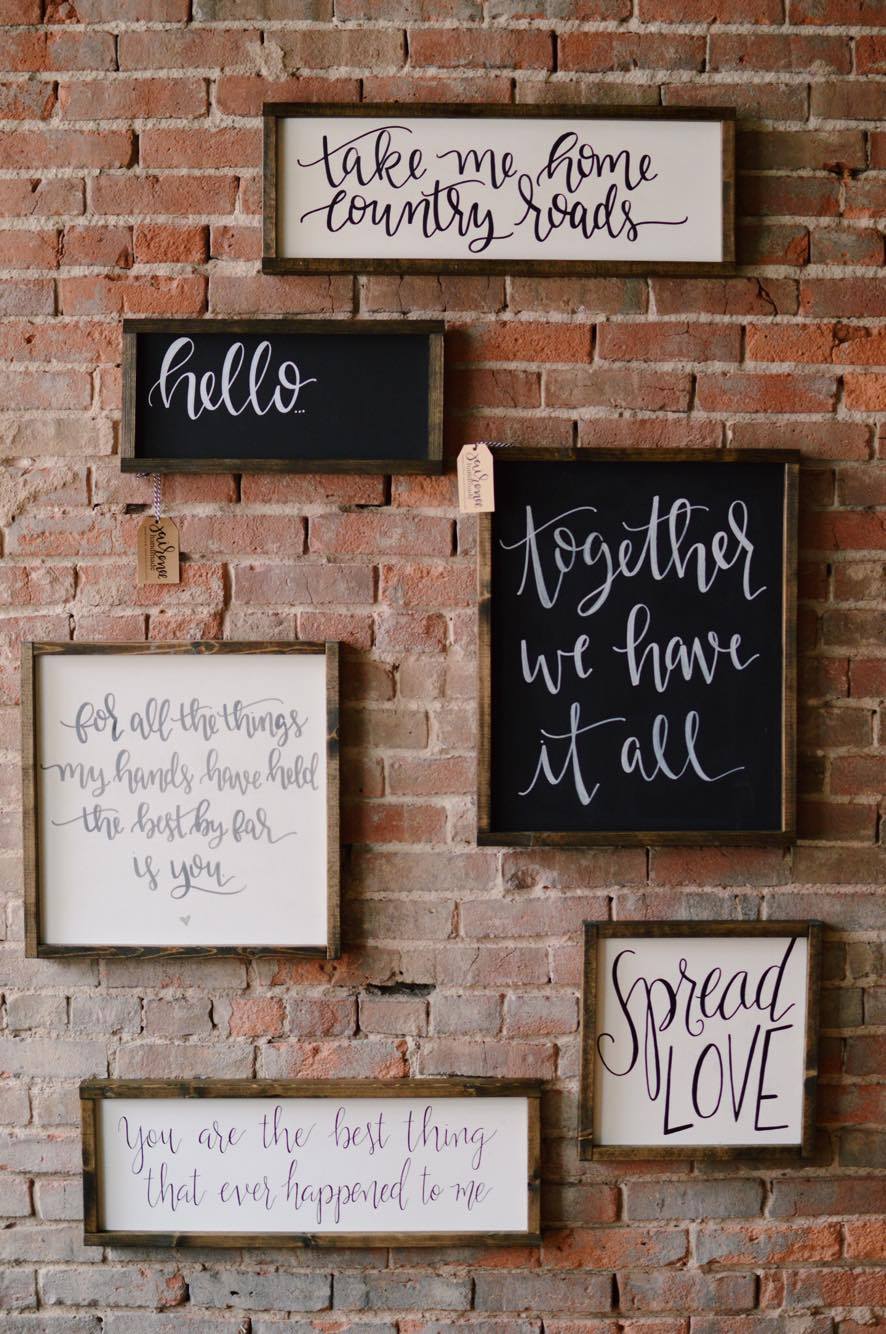 take me home
country roads
hello...
together
we have
it all
for all the things
my hands have held
the best by far
is you
Spread
LOVE
You are the best thing
that ever happened to me
handmade
handmade